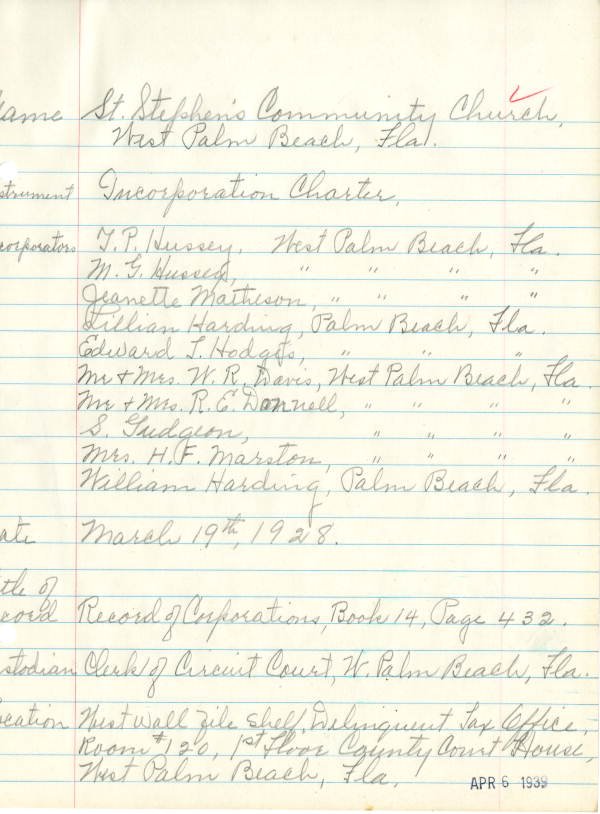 ame St. Stephen's Community Church,
West Palm Beach, Fla.
strument Incorporation Charter,
corporators T. P. Hussey, West Palm Beach, Fla.
M. G. Hussey, " " " "
Jeanette Matheson, " " " "
Lillian Harding, Palm Beach, Fla.
Edward T. Hodgts, " " "
Mr & Mrs. W. R. Davis, West Palm Beach, Fla.
Mr & Mrs. R. E. Donnell, " " " "
S. Gudgeon, " " " "
Mrs. H. F. Marston, " " " "
William Harding, Palm Beach, Fla.
ate March 19th, 1928.
itle of
cord Record of Corporations, Book 14, Page 432.
stodian Clerk of Circuit Court, W. Palm Beach, Fla.
ocation West wall file shelf, Delinquent Tax Office,
Room #120, 1st Floor County Court House,
West Palm Beach, Fla.
APR 6 1939